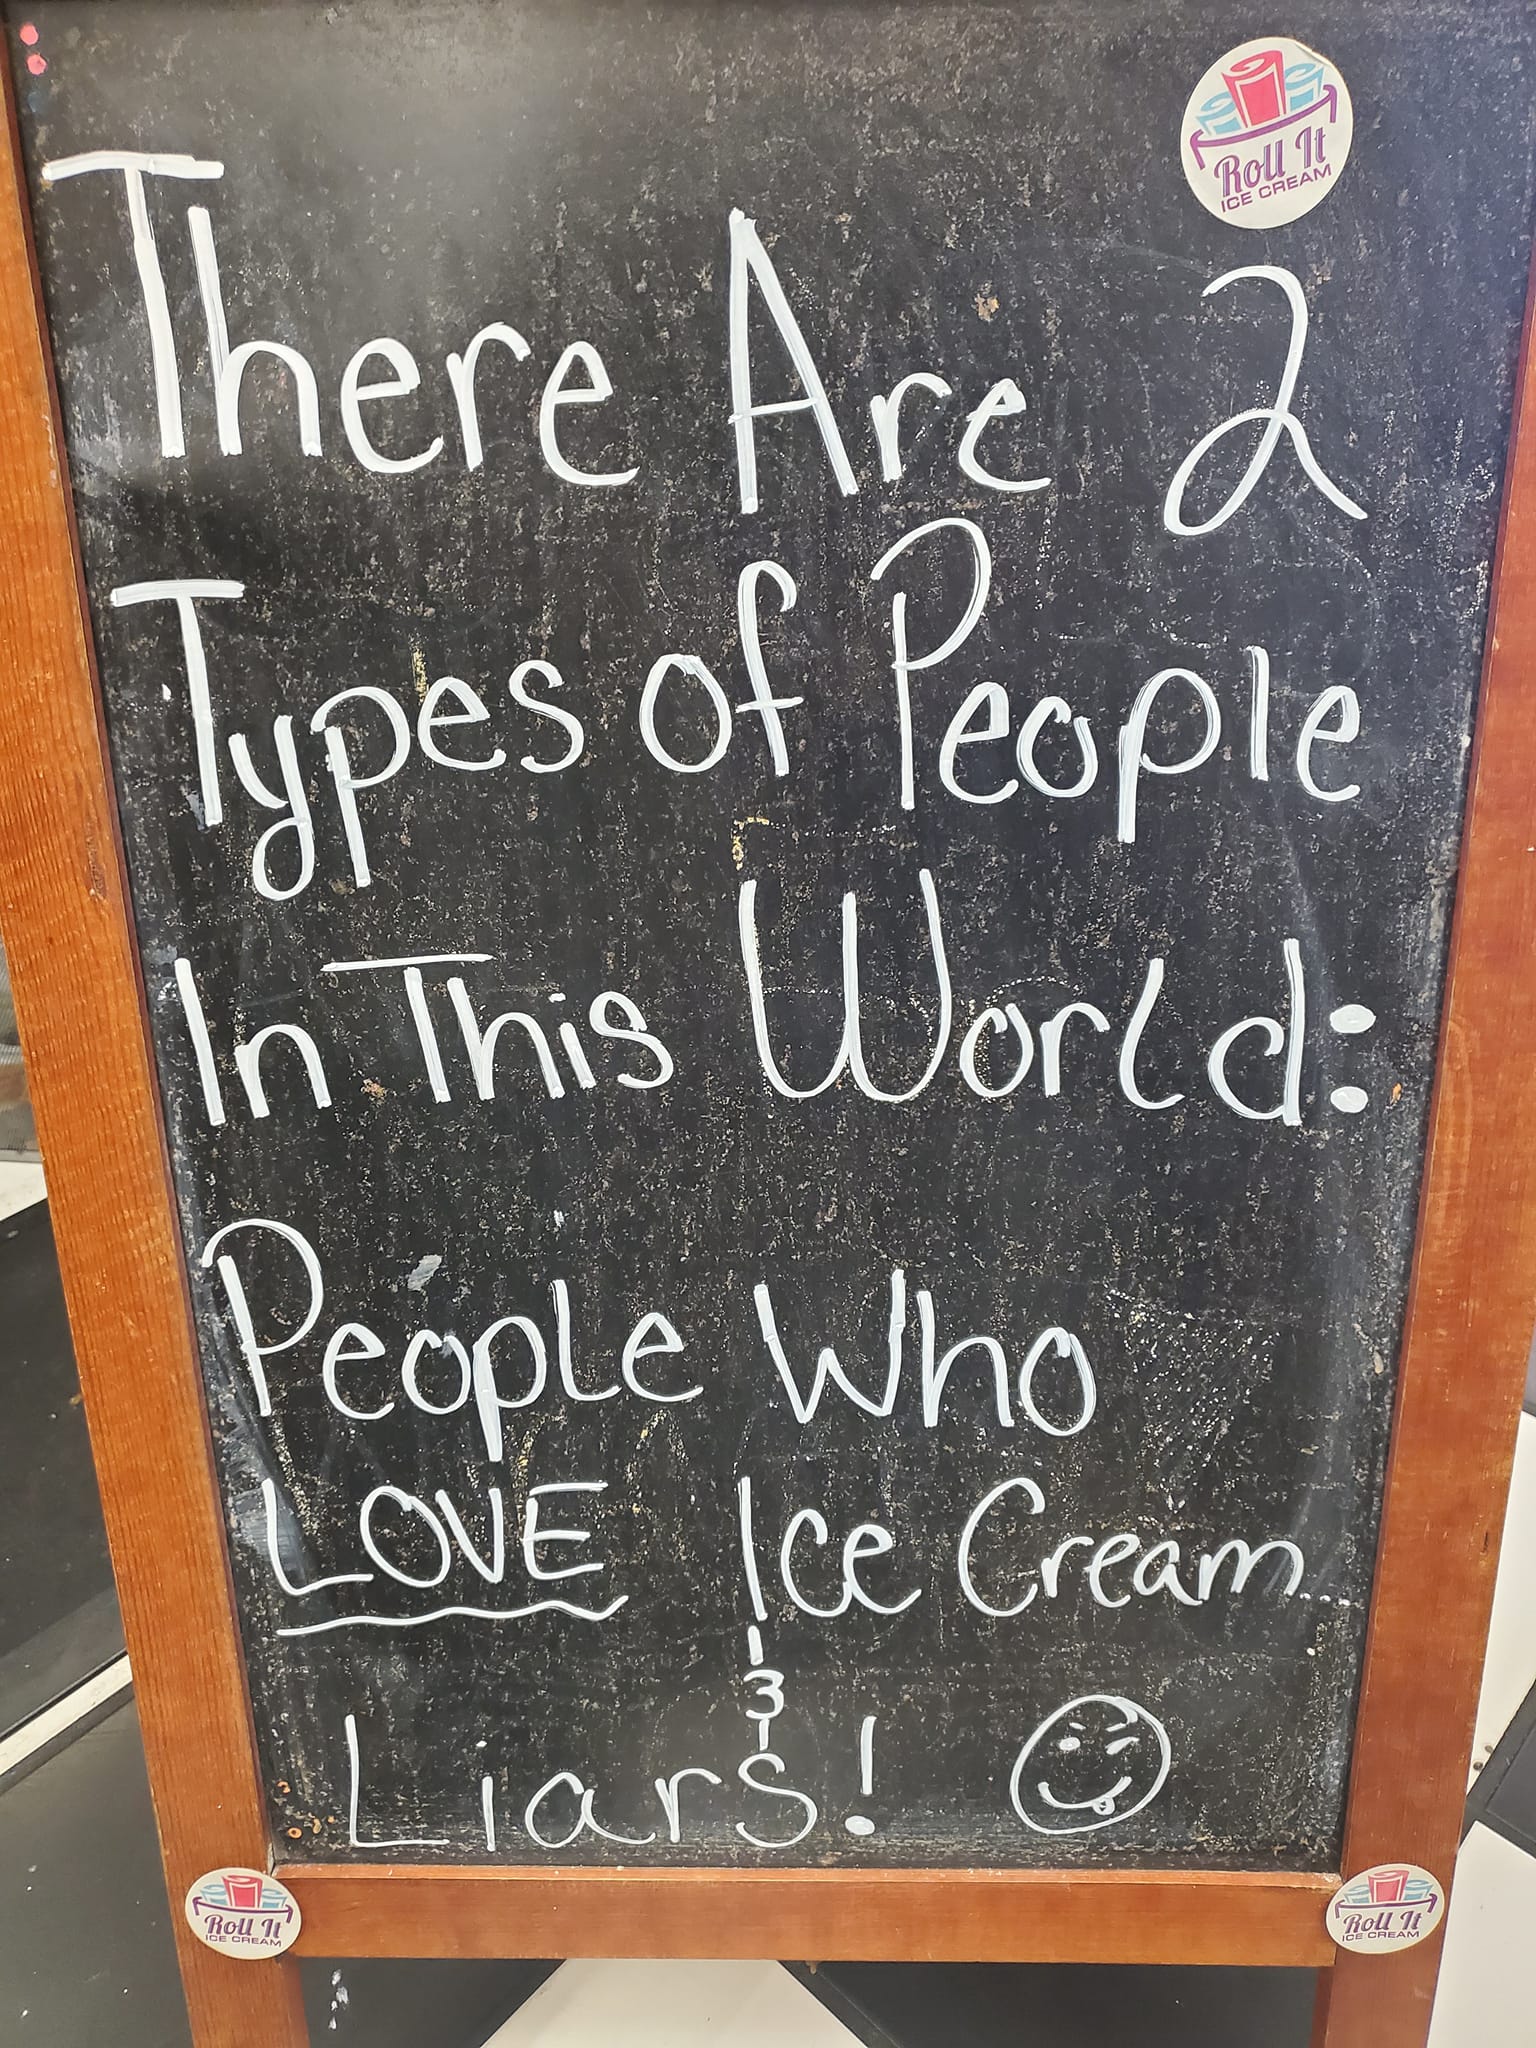 Roll It
ICE CREAM
There Are 2
Types of People
In This World:
People Who
LOVE Ice Cream..
&
Liars!
Roll It
ICE CREAM
Roll It
ICE CREAM